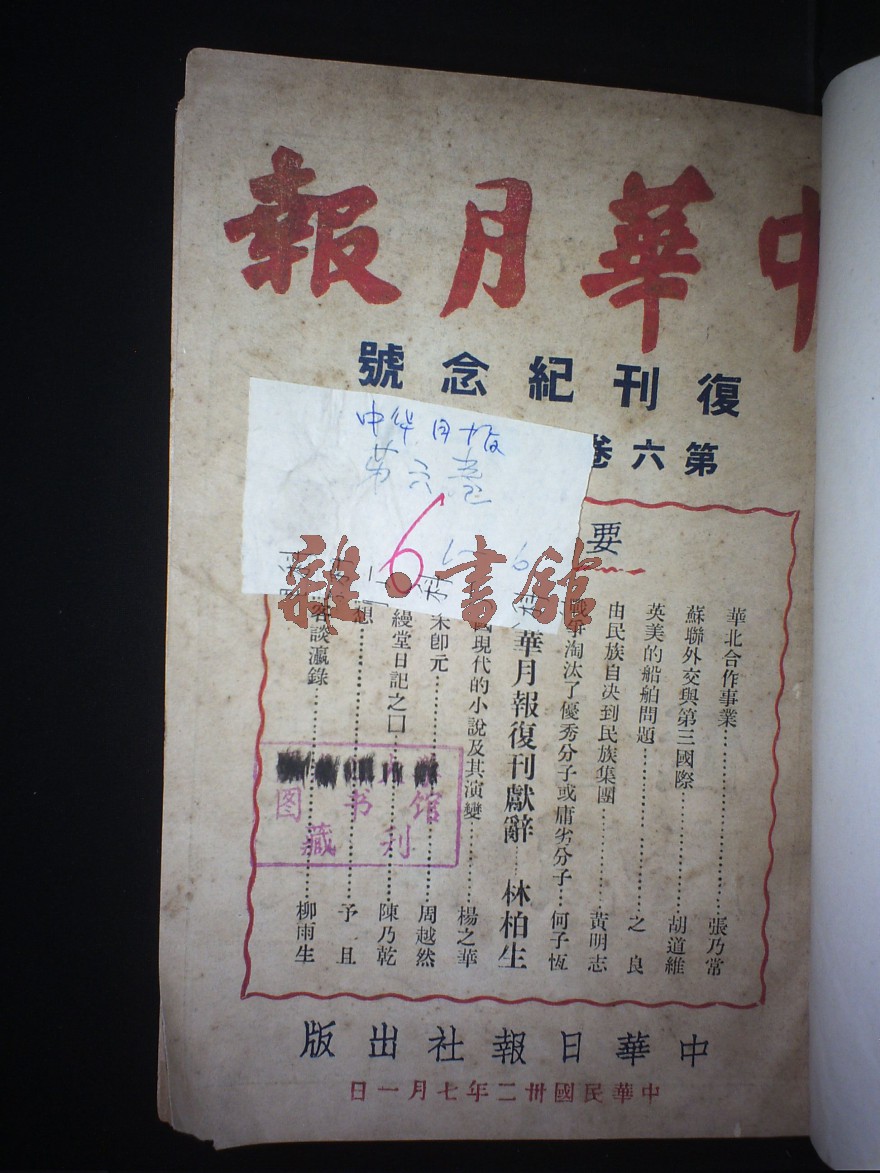 中華月報
復刊紀念號
第六卷
中华月报
第六卷
6
要
華北合作事業……張乃常
蘇聯外交與第三國際……胡道維
英美的船舶問題……之良
由民族自决到民族集團……黃明志
戰爭淘汰了優秀分子或庸劣分子……何子恆
華月報復刊獻辭……林柏生
現代的小說及其演變……楊之華
朱卽元……周越然
縵堂日記之囗……陳乃乾
想……予且
客談瀛錄……柳雨生
雜·書館
图书馆
藏刊
中華日報社出版
中華民國卅二年七月一日